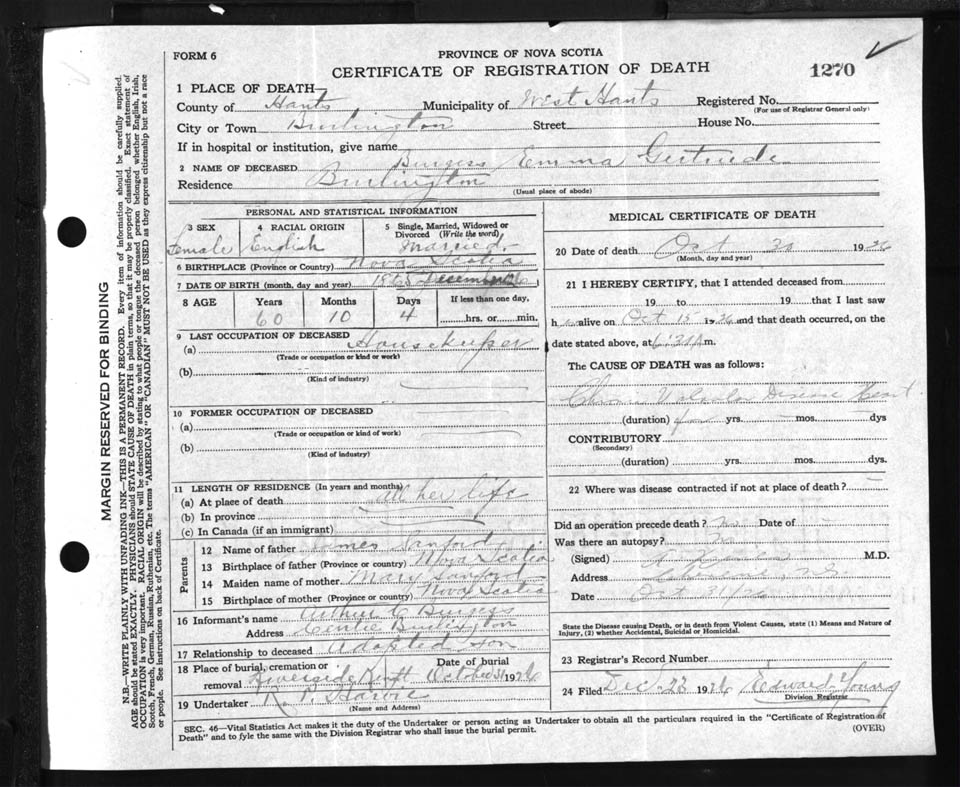 FORM 6
PROVINCE OF NOVA SCOTIA
CERTIFICATE OF REGISTRATION OF DEATH
1270
1 PLACE OF DEATH—
County of Hants Municipality of West Hants Registered No.
(For use of Registrar General only)
City or Town Burlington Street House No.
If in hospital or institution, give name
2 NAME OF DECEASED Burgess Emma Gertrude
Residence Burlington
(Usual place of abode)
PERSONAL AND STATISTICAL INFORMATION
3 SEX 4 RACIAL ORIGIN 5 Single, Married, Widowed or Divorced (Write the word)
Female English Married
6 BIRTHPLACE (Province or Country) Nova Scotia
7 DATE OF BIRTH (month, day and year) December
8 AGE Years Months Days If less than one day,
60 10 4 hrs. or min.
9 LAST OCCUPATION OF DECEASED
(a) Housekeeper
(Trade or occupation or kind or work)
(b)
(Kind of industry)
10 FORMER OCCUPATION OF DECEASED
(a)
(Trade or occupation or kind of work)
(b)
(Kind of industry)
11 LENGTH OF RESIDENCE (In years and months)
(a) At place of death all her life
(b) In province
(c) In Canada (if an immigrant)
Parents
12 Name of father Sanford
13 Birthplace of father (Province or country) Nova Scotia
14 Maiden name of mother Mary Sanford
15 Birthplace of mother (Province or country) Nova Scotia
16 Informant's name Arthur C Burgess
Address Centre Burlington
17 Relationship to deceased Adopted son
18 Place of burial, cremation or removal Riverside Date of burial October 31 1926
19 Undertaker Harvie
(Name and Address)
MEDICAL CERTIFICATE OF DEATH
20 Date of death Oct 30 1926
(Month, day and year)
21 I HEREBY CERTIFY, that I attended deceased from
19 to 19 that I last saw
h alive on Oct 15 1926 and that death occurred, on the
date stated above, at m.
The CAUSE OF DEATH was as follows:
Chronic Valvular Disease Heart
(duration) yrs. mos. dys
CONTRIBUTORY
(Secondary)
(duration) yrs. mos. dys.
22 Where was disease contracted if not at place of death?
Did an operation precede death? no Date of
Was there an autopsy? no
(Signed) M.D.
Address N.S.
Date Oct 31/26
State the Disease causing Death, or in death from Violent Causes, state (1) Means and Nature of
Injury, (2) whether Accidental, Suicidal or Homicidal.
23 Registrar's Record Number
24 Filed Dec 28 1926 Edward Young
Division Registrar
SEC. 46—Vital Statistics Act makes it the duty of the Undertaker or person acting as Undertaker to obtain all the particulars required in the "Certificate of Registration of
Death" and to fyle the same with the Division Registrar who shall issue the burial permit.
(OVER)
MARGIN RESERVED FOR BINDING
N.B.—WRITE PLAINLY WITH UNFADING INK—THIS IS A PERMANENT RECORD. Every item of information should be carefully supplied.
AGE should be stated EXACTLY. PHYSICIANS should STATE CAUSE OF DEATH in plain terms, so that it may be properly classified. Exact statement of
OCCUPATION is very important. RACIAL ORIGIN will be described by stating to what people or tongue the deceased person belonged whether English, Irish,
Scotch, French, German, Russian, Ruthenian, etc. The terms "AMERICAN" OR "CANADIAN" MUST NOT BE USED as they express citizenship but not a race
or people. See instructions on back of Certificate.